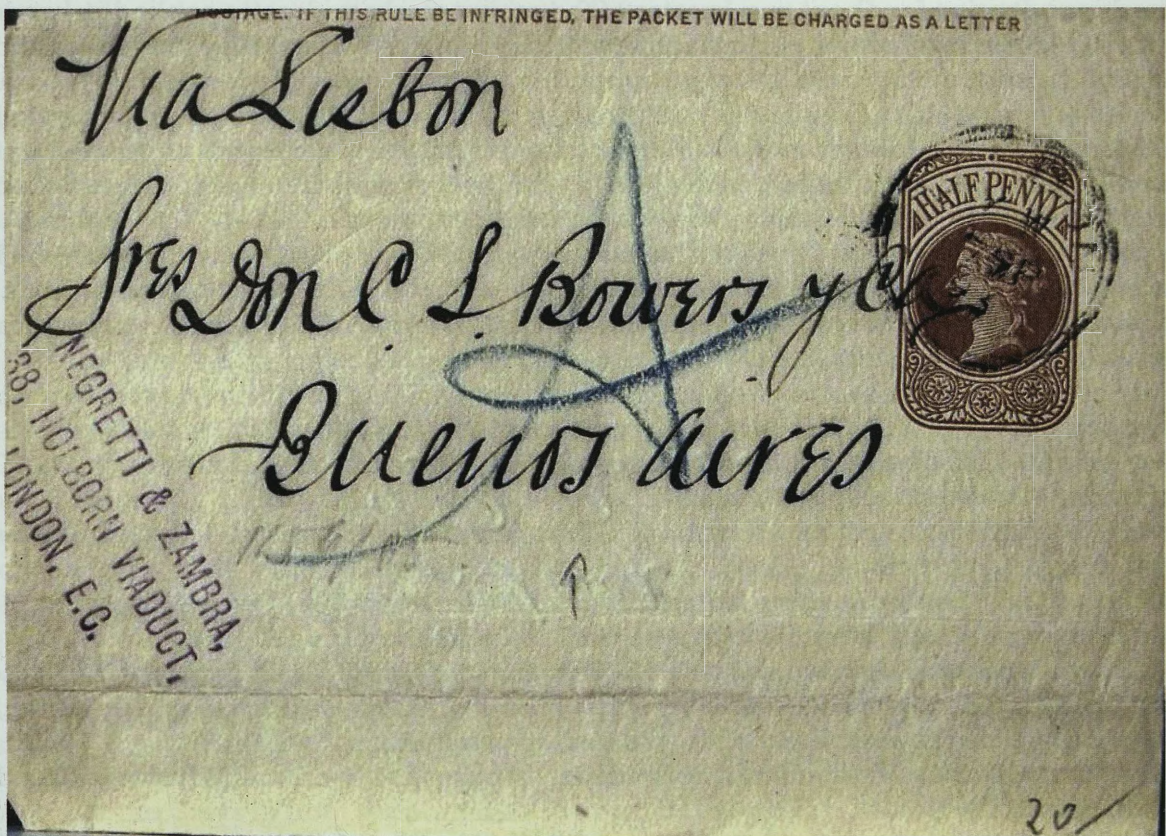 POSTAGE. IF THIS RULE BE INFRINGED, THE PACKET WILL BE CHARGED AS A LETTER
Via Lisbon
HALF PENNY
Sres Don C L Bowers y Ca
Buenos Aires
NEGRETTI & ZAMBRA,
38, HOLBORN VIADUCT,
LONDON, E.C.
20/